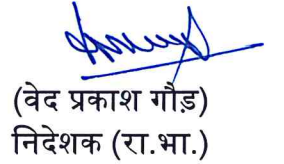 (वेद प्रकाश गौड़)
निदेशक (रा.भा.)